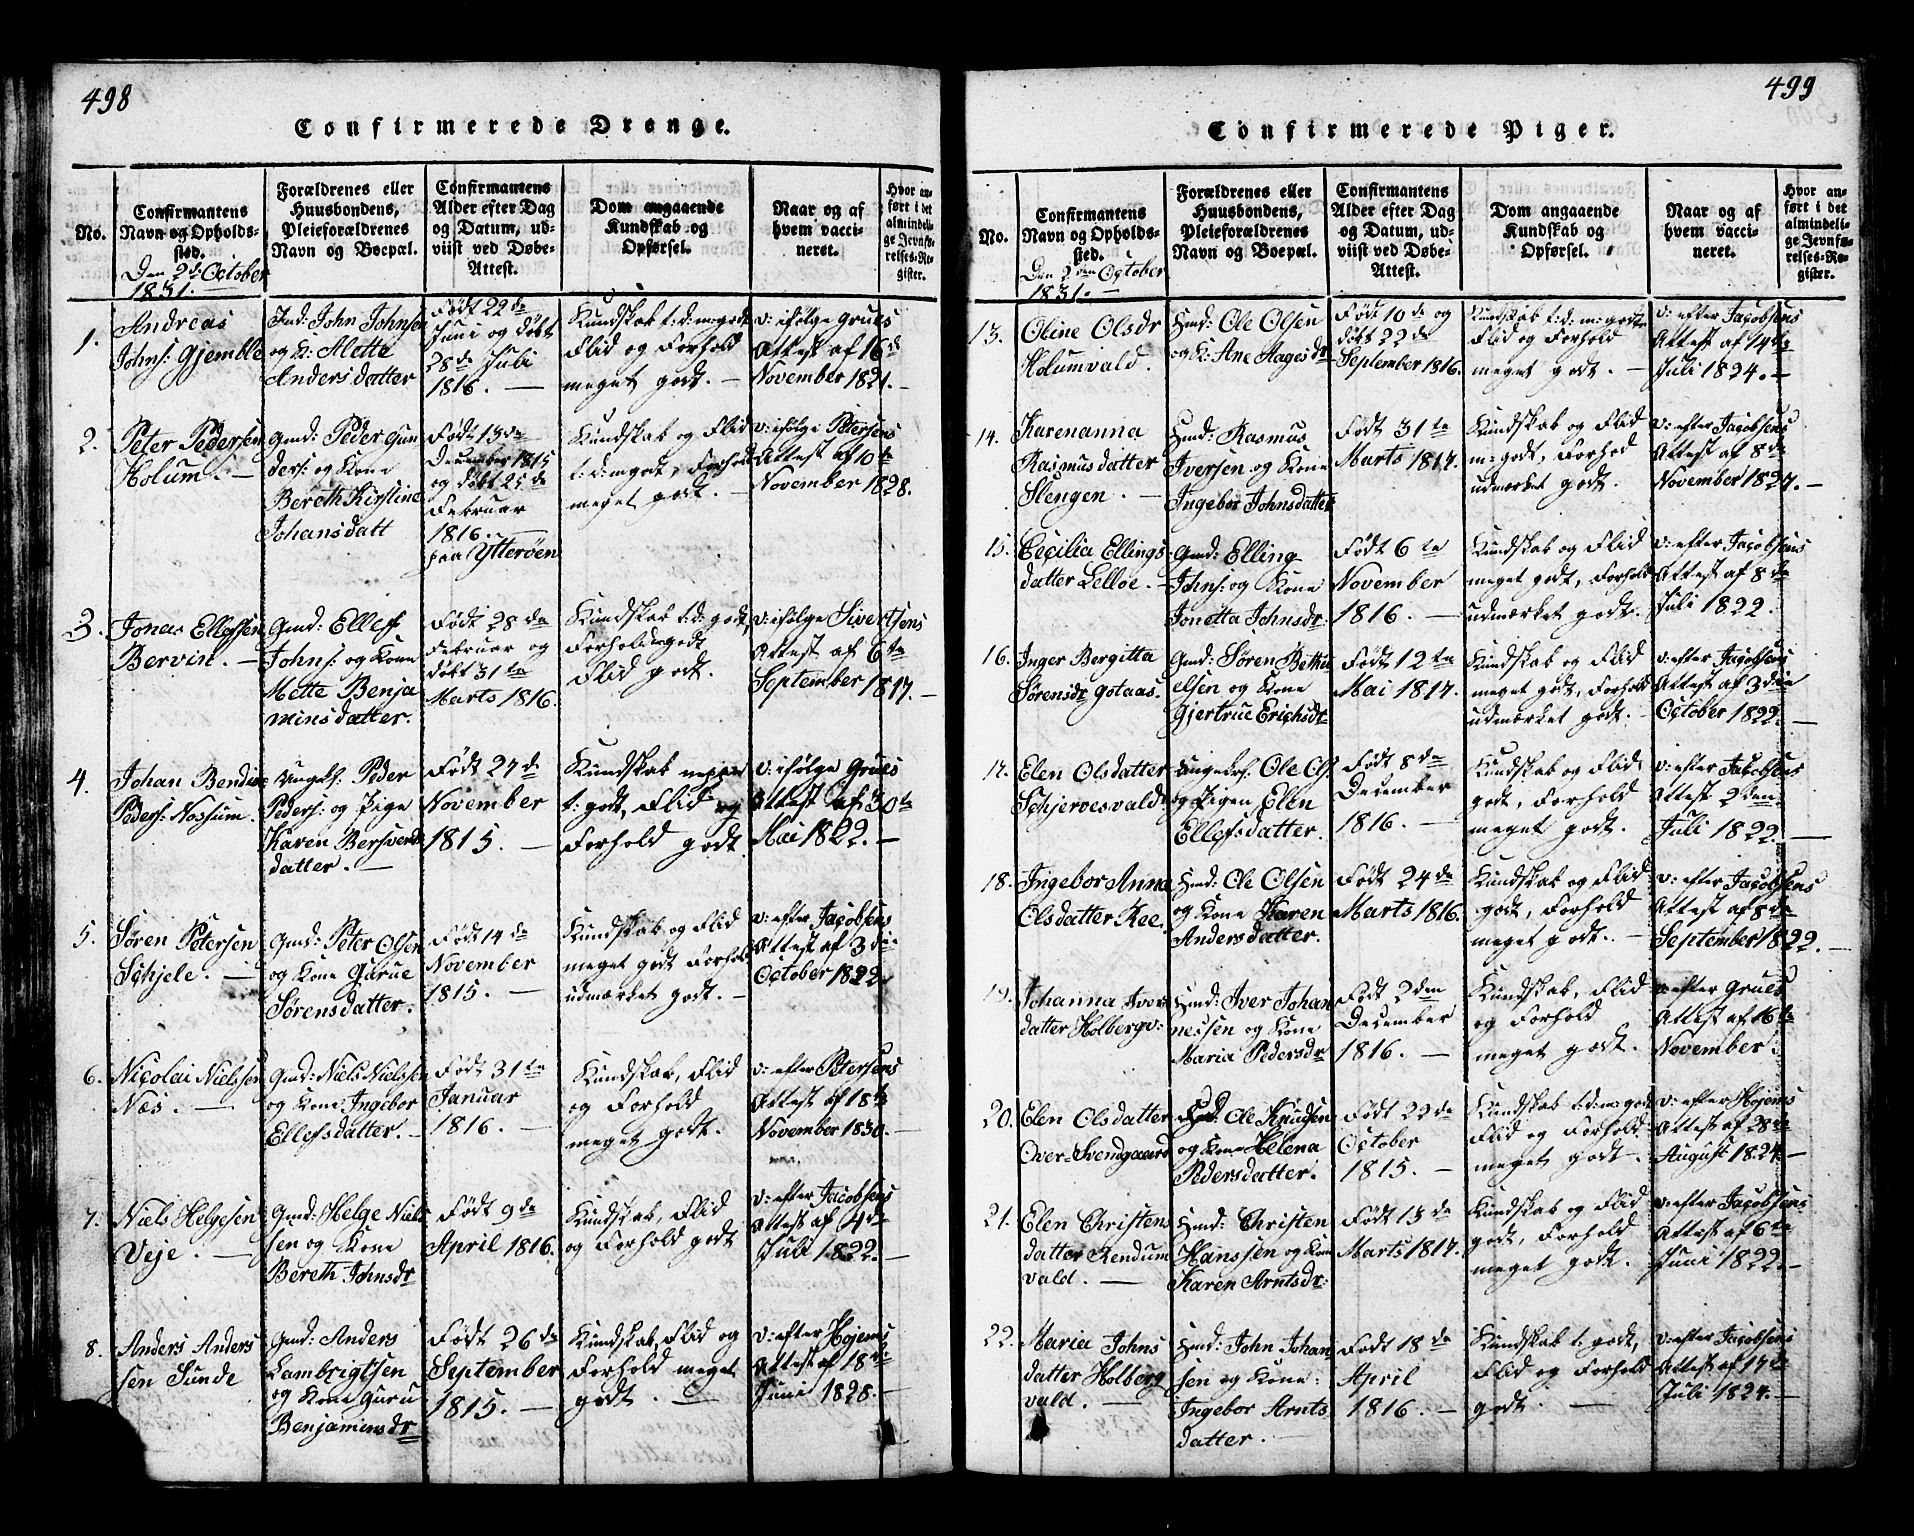 498
Confirmerede Drenge.
No.
Confirmantens
Navn og Opholds-
sted.
Forældrenes eller
Huusbondens,
Pleieforældrenes
Navn og Boepæl.
Confirmantens
Alder efter Dag
og Datum, ud-
viist ved Døbe-
Attest.
Dom angaaende
Kundskab og
Opførsel.
Naar og af
hvem vacci-
neret.
Hvor an-
ført i det
almindeli-
ge Jevnfø-
relses-Re-
gister.
Den 2de October
1831.
1.
Andreas
Johns: Gjemble
Ind: John Johnsen
og K: Aletta
Anders datter
Født 22de
Juni og døbt
28de Juli
1816. —
Kundskab t: d: m: godt
Flid og Forhold
meget godt. —
v: ifølge Grues
Attest af 16de
November 1821. —
2.
Peter Pedersen
Holum. —
Gmd: Peder Gun
ders: og Kone
Bereth Kirstine
Johansdatt
Født 13de
December 1815
og døbt 25de
Februar
1816. —
paa Ytterøen
Kundskab og Flid
t: d: m godt, Forhold
meget godt. —
v: ifølge Petersens
Attest af 10te
November 1828.
3.
Jonas Ellefsen
Bervin. —
Gmd: Ellef
Johns: og Kone
Mette Benja
minsdatter.
Født 28de
Februar og
døbt 31te
Marts 1816.
Kundskab t: d: godt,
Forhold m godt
Flid godt.
v: ifølge Sivertsens
Attest af 6te
September 1817. —
4.
Johan Bendix
Peders: Nossum.
Ungk: Peder
Peders: og Pige
Karen Bersvend
datter. —
Født 27de
November
1815. —
Kundskab neppe
t: godt, Flid og
Forhold godt.
v: ifølge Grues
Attest af 30te
Mai 1822. —
5.
Søren Petersen
Schjele. —
Gmd: Peter Olsen
og Kone Gurue
Sørensdatter.
Født 14de
November
1815. —
Kundskab og Flid
meget godt Forhold
udmærket godt. —
v: efter Jacobsens
Attest af 3die
October 1822
6.
Nicolai Nielssen
Næs. —
Gmd: Niels Nielssen
og Kone Ingebor
Ellefsdatter. —
Født 31te
Januar
1816. —
Kundskab, Flid
og Forhold
meget godt.
v: efter Petersens
Attest af 18de
November 1830. —
7.
Niels Helgesen
Veje. —
Gmd: Helge Niels
sen og Kone
Bereth Johnsdr
Født 9de
April 1816.
Kundskab, Flid
og Forhold godt
v: efter Jacobsens
Attest af 4de
Juli 1822. —
8.
Anders Anders
sen Sunde
Gmd: Anders
Lambrigtsen
og Kone Guru
Benjaminsdr
Født 26de
September
1815. —
Kundskab, Flid og
Forhold meget
godt. —
v: efter Højems
Attest af 18de
Juni 1828. —
499
Confirmerede Piger.
No.
Confirmantens
Navn og Opholds-
sted.
Forældrenes eller
Huusbondens,
Pleieforældrenes
Navn og Boepæl.
Confirmantens
Alder efter Dag
og Datum, ud-
viist ved Døbe-
Attest.
Dom angaaende
Kundskab og
Opførsel.
Naar og af
hvem vacci-
neret.
Hvor an-
ført i det
almindeli-
ge Jevnfø-
relses-Re-
gister.
Den 2den October
1831. —
13.
Oline Olsdr
Holumvald.
Hmd: Ole Olsen
og K: Ane Aagesdr
Født 10de og
døbt 22de
September 1816.
Kundskab t: d: m: godt
Flid og Forhold
meget godt. —
v: efter Jacobsens
Attest af 14de
Juli 1824. —
14.
Karenanna
Rasmusdatter
Slengen. —
Hmd: Rasmus
Iversen og Kone
Ingebor Johnsdatter
Født 31te
Marts 1817.
Kundskab og Flid
m: godt, Forhold
udmærket godt.
v: efter Jacobsens
Attest af 8de
November 1827. —
15.
Cecilia Ellings
datter Lelloe. —
Gmd: Elling
Johns: og Kone
Jonetta Johnsdr:
Født 6te
November
1816. —
Kundskab og Flid
meget godt, Forhold
udmærket godt.
v: efter Jacobsens
Attest af 8de
Juli 1822.
16.
Inger Bergitta
Sørensdr Gotaas.
Gmd: Søren Bethu
elsen og Kone
Gjertrue Erichsdr
Født 12te
Mai 1817.
Kundskab og Flid
meget godt, Forhold
udmærket godt. —
v: efter Jacobsens
Attest af 3die
October 1822. —
17.
Elen Olsdatter
Schjervesvald
Ungk: Ole Ols:
og Pigen Elen
Ellefsdatter.
Født 8de
December
1816. —
Kundskab og Flid
godt, Forhold
meget godt.
v: efter Jacobsens
Attest 2den
Juli 1822. —
18.
Ingebor Anna
Olsdatter Ree.
Hmd: Ole Olsen
og Kone Karen
Andersdatter.
Født 24de
Marts 1816.
Kundskab og Flid
godt, Forhold
meget godt. —
v: efter Jacobsens
Attest af 8de
September 1822. —
19.
Johanna Ivers
datter Holbergv:
Hmd: Iver Johan
nessen og Kone
Maria Pedersdr
Født 2den
December
1816. —
Kundskab, Flid
og Forhold
meget godt.
v: efter Grues
Attest af 16de
November.
20.
Elen Olsdatter
Over-Svendgaard
Ole Knudsen
og Kone Helena
Pedersdatter.
Født 22de
October
1815. —
Kundskab t: d: m: godt
Flid og Forhold
meget godt.
v: efter Højems
Attest af 28de
August 1824. —
21.
Elen Christens
datter Rendum
vald. —
Hmd: Christen
Hanssen og Kone
Karen Arntsdr:
Født 13de
Marts 1817.
Kundskab og Flid
godt, Forhold
meget godt.
v: efter Jacobsens
Attest af 6te
Juni 1822. —
22.
Maria Johns
datter Holberg
vald. —
Hmd: John Johan
sen og Kone:
Ingebor Arnts
datter.
Født 18de
April
1816. —
Kundskab t: godt,
Flid og Forhold
godt. —
v: efter Jacobsens
Attest af 17de
Juli 1824. —